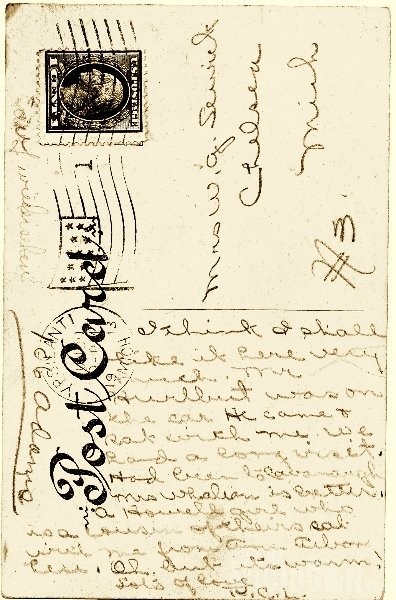 I think I shall
like it here very
much. Mr
Hurlburt was on
the car. He came &
sat with me. We
had a long visit.
Had been to Cavanaugh.
Mrs Whalian is better.
a Howell girl who
is a cousin of theirs sat
with me from Ann Arbor
here. Oh but its warm.
lots of love
Post Card
Mrs W. G.
Chelsea
Mich
#3.
Adams
U.S. POSTAGE
1